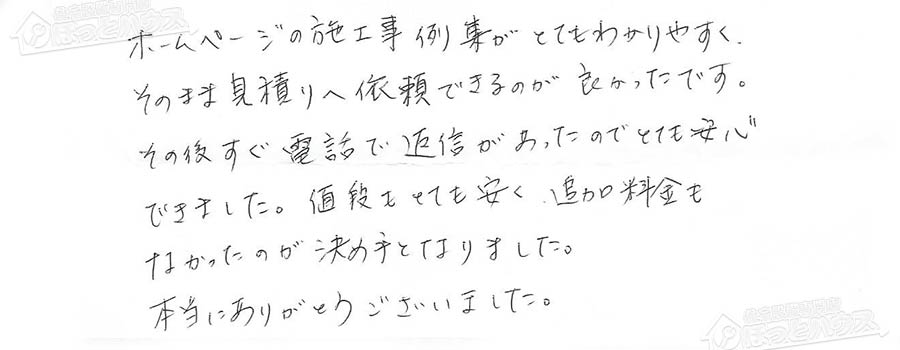 ホームページの施工事例集がとてもわかりやすく、
そのまま見積りへ依頼できるのが良かったです。
その後すぐ電話で返信があったのでとても安心
できました。値段もとても安く、追加料金も
なかったのが決め手となりました。
本当にありがとうございました。
ほっとハウス
ほっとハウス